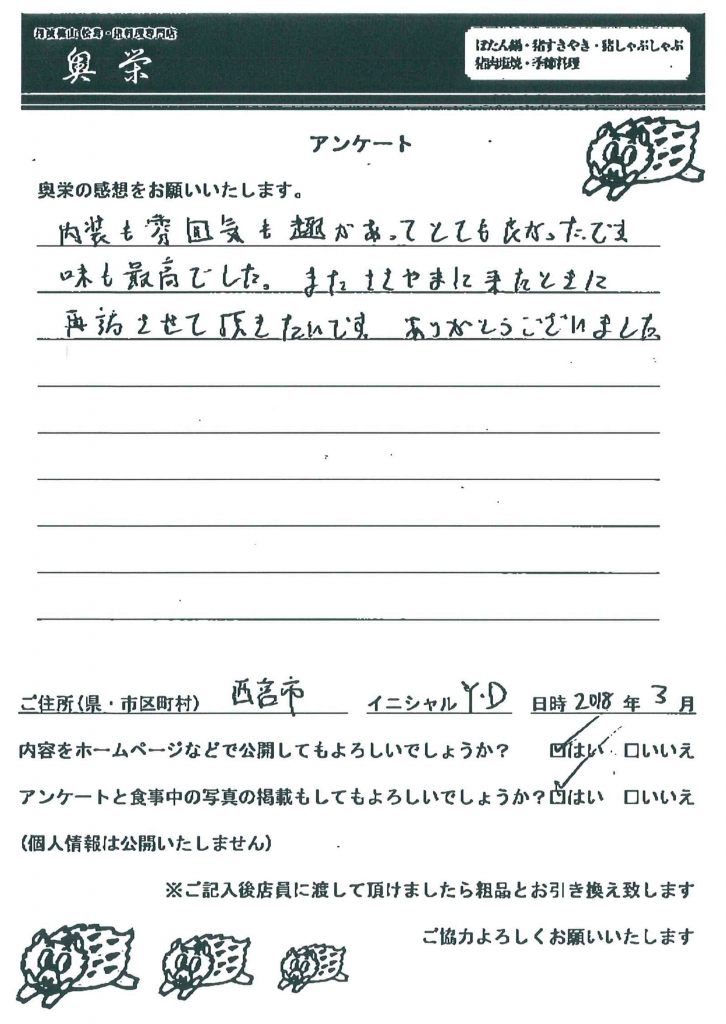 丹波篠山 松茸・猪料理専門店
奥栄
ぼたん鍋・猪すきやき・猪しゃぶしゃぶ
猪肉塩焼・季節料理
アンケート
奥栄の感想をお願いいたします。
内装も雰囲気も趣があってとても良かったです
味も最高でした。またささやまに来たときに
再訪させて頂きたいです ありがとうございました
ご住所(県・市区町村) 西宮市 イニシャル Y.D 日時 2018 年 3 月
内容をホームページなどで公開してもよろしいでしょうか? ☑はい □いいえ
アンケートと食事中の写真の掲載もしてもよろしいでしょうか?☑はい □いいえ
(個人情報は公開いたしません)
※ご記入後店員に渡して頂けましたら粗品とお引き換え致します
ご協力よろしくお願いいたします